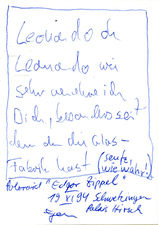 Leonardo oh
Leonardo wie
sehr verehre ich
Dich, besonders seit
dem du die Glas-
Fabrik hast (seufz, wie wahr!)
"Edgar Zippel"
19 VI 94 Schwetzingen
Palais Hirsch